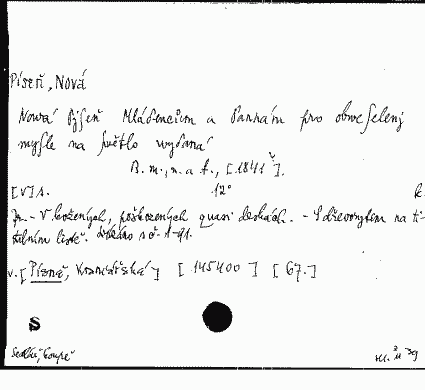 Píseň, Nová
Nowá Pjseň Mládencům a Pannám pro obweselenj
mysle na swětlo wydaná
B. m., n. a t., [1841?].
[V] A. 12° k.
In. - V kožených, poškozených quasi deskách. - S dřevorytem na ti-
tulním listě.
v. [Písně, Kramářská] [145400] [67.]
S